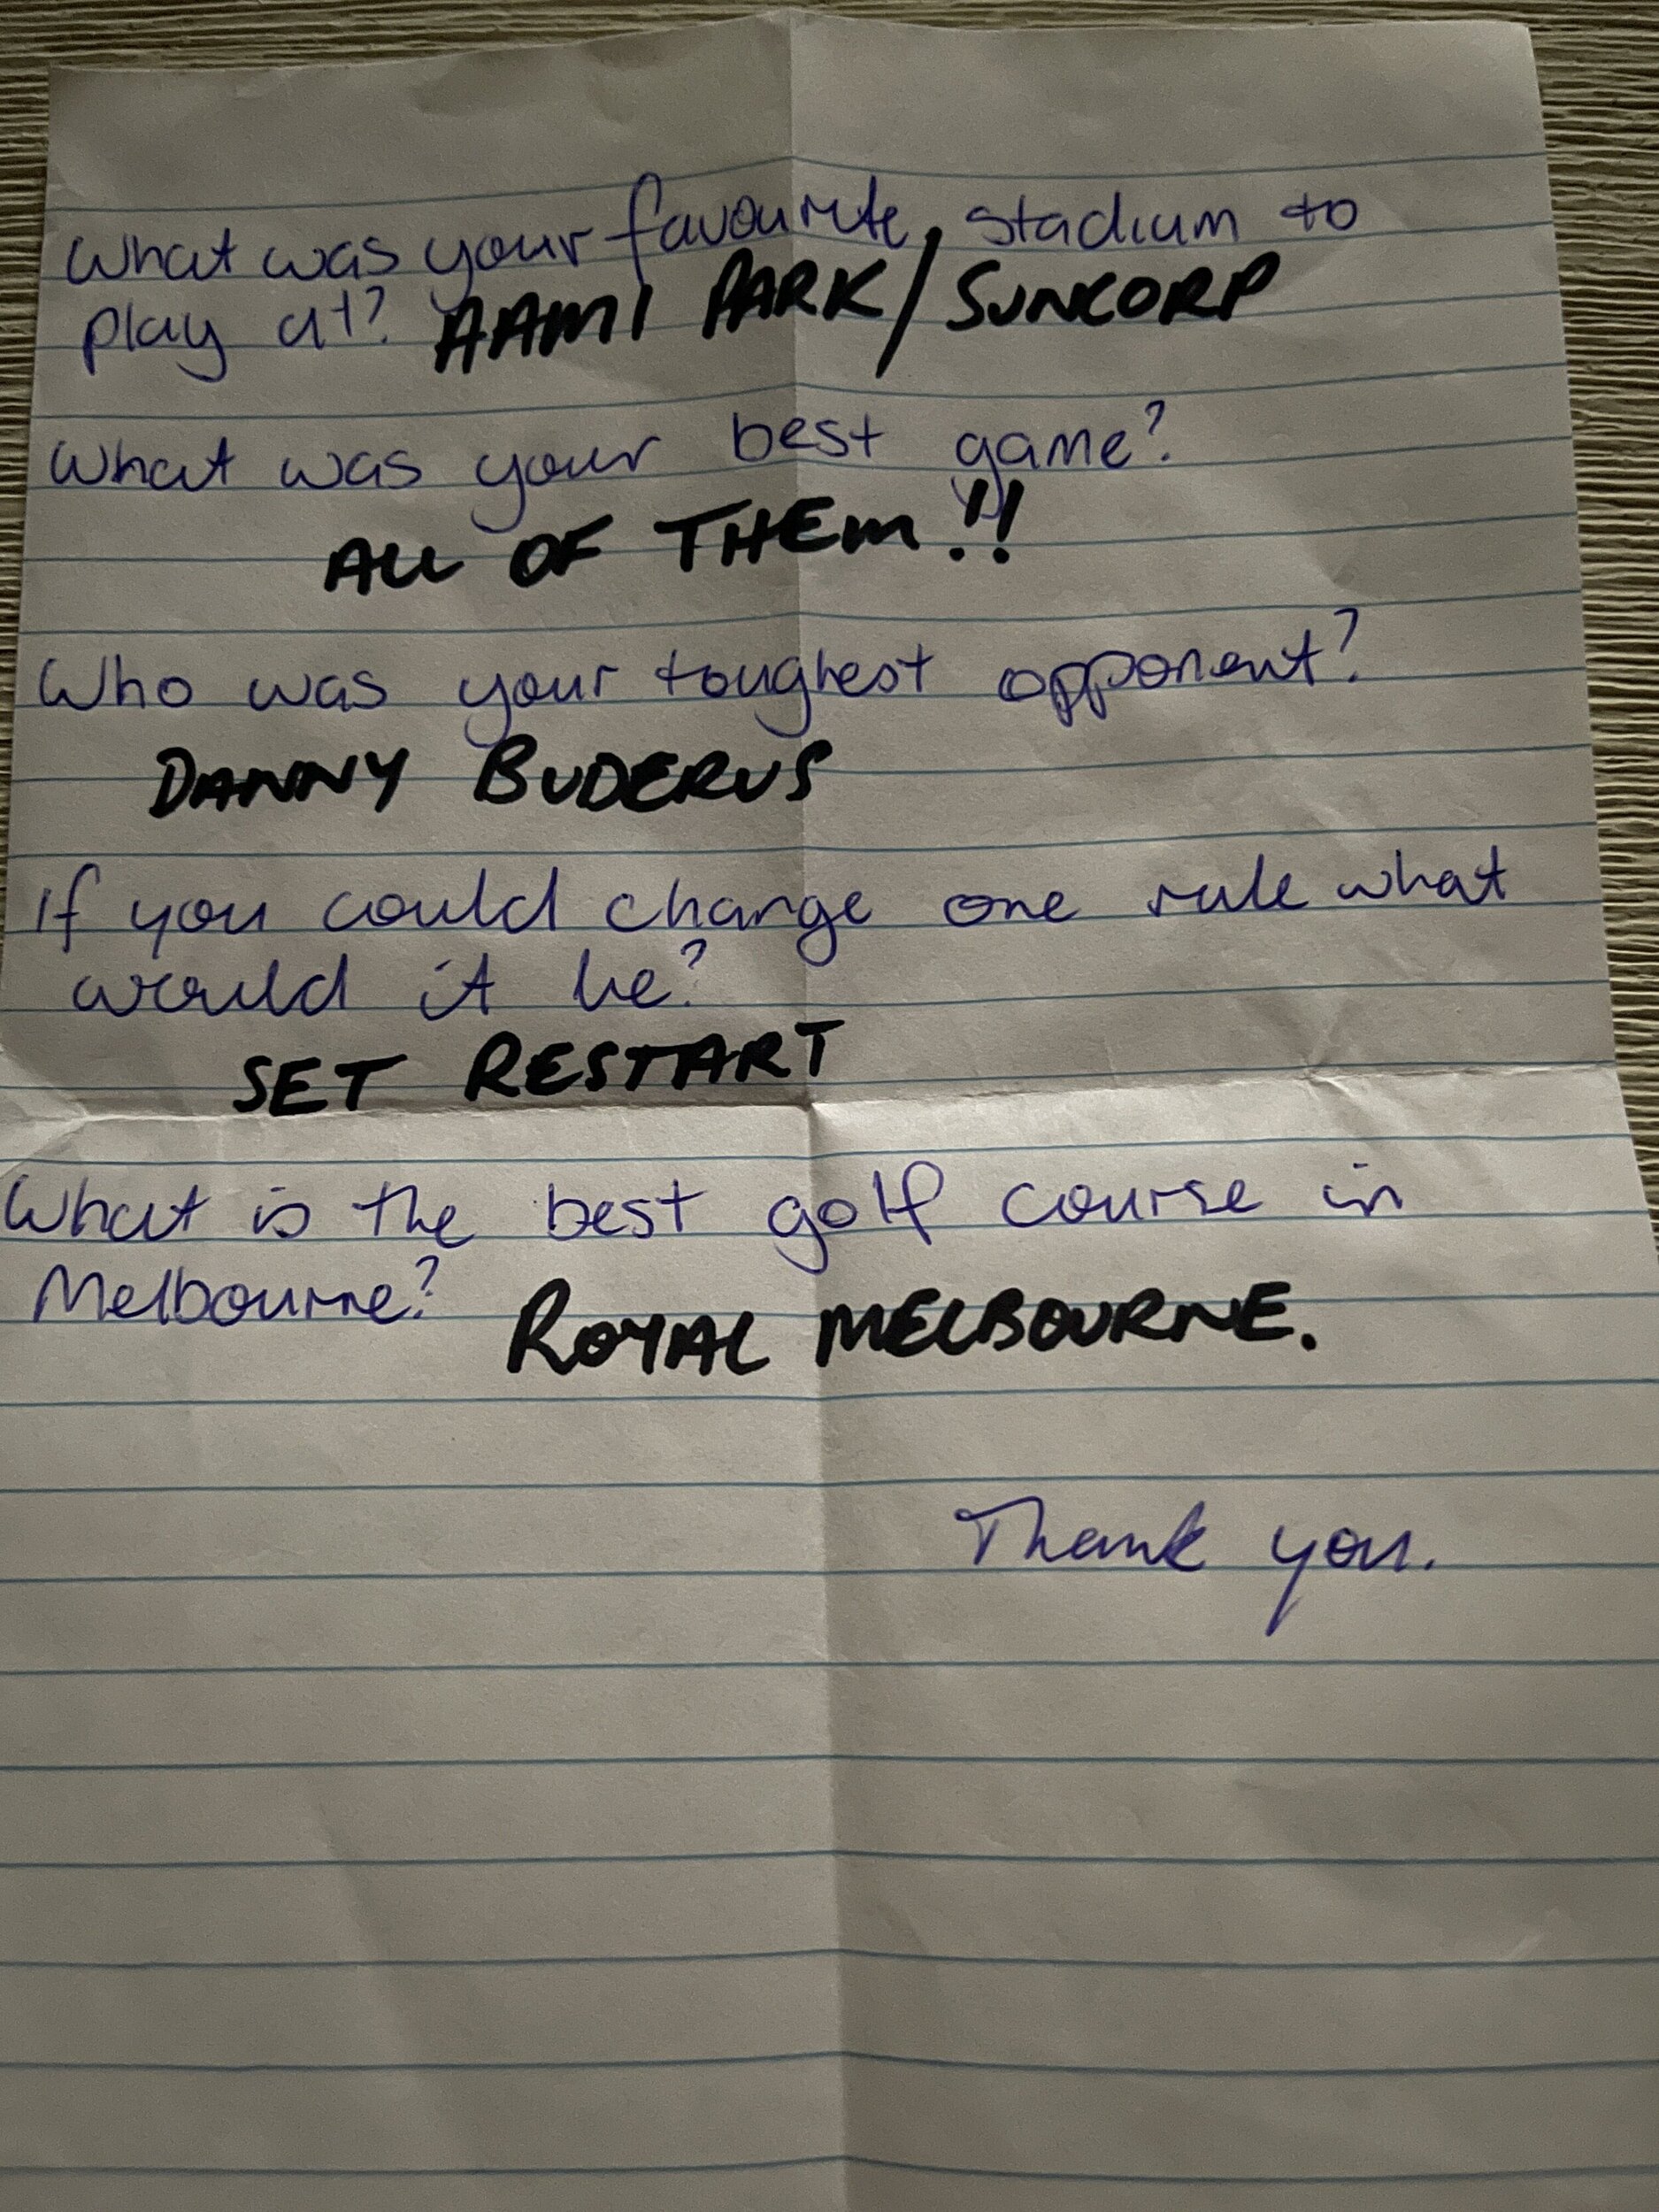 What was your favourite stadium to
play at? AAMI PARK/SUNCORP
What was your best game?
ALL OF THEM!!
Who was your toughest opponent?
DANNY BUDERUS
If you could change one rule what
would it be?
SET RESTART
What is the best golf course in
Melbourne? ROYAL MELBOURNE.
Thank you.